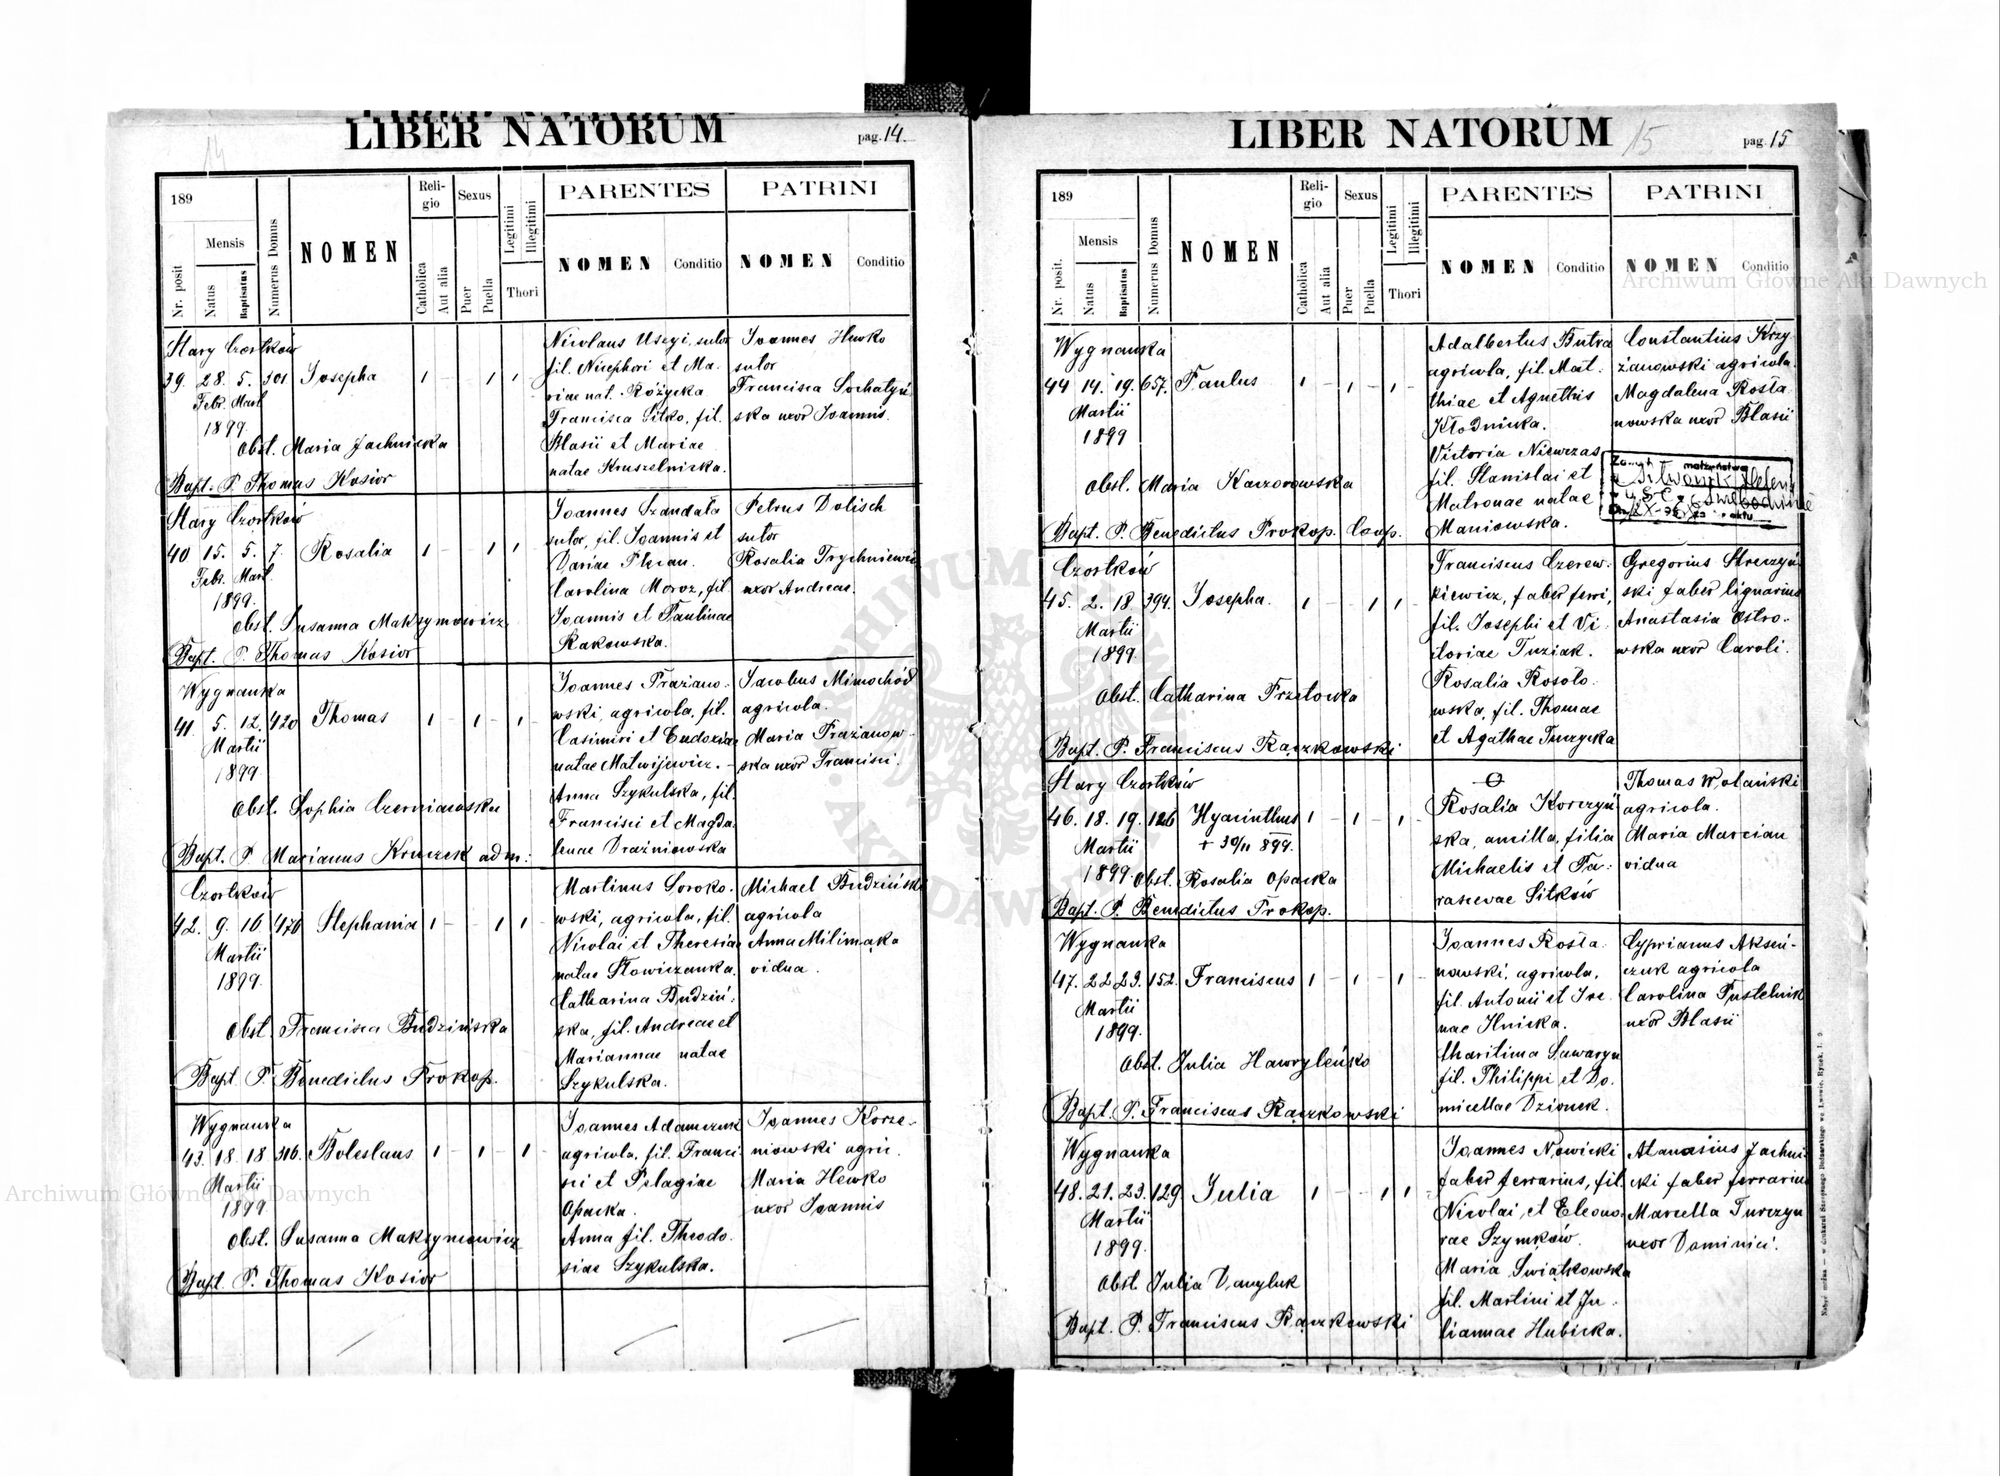 LIBER NATORUM
pag. 14.
14
189
Mensis
Nr. posit
Natus
Baptisatus
Numerus Domus
NOMEN
Religio
Catholica
Aut alia
Sexus
Puer
Puella
Legitimi
Illegitimi
Thori
PARENTES
NOMEN
Conditio
PATRINI
NOMEN
Conditio
Stary Czortków
39. 28. 5. 301 Josepha 1 - 1 1
Febr. Mart.
1899.
Obst. Maria Jachnicka
Bapt. P. Thomas Kosior
Nicolaus Usegi, sutor
fil. Nicephori et Ma-
riae nat. Różycka
Francisca Sitko, fil.
Blasii et Mariae
natae Kruszelnicka.
Joannes Hewko
sutor
Francisca Sochatyń-
ska uxor Joannis.
Stary Czortków
40 15. 5. 7. Rosalia 1 - 1 1
Febr. Mart.
1899.
Obst. Susanna Maksymowicz
Bapt. P. Thomas Kosior
Joannes Szandała
sutor, fil. Joannis et
Dariae
Carolina Moroz, fil.
Joannis et Paulinae
Rakowska.
Petrus Dolisch
sutor
Rosalia Trychniewicz
uxor Andreae.
Wygnanka
41. 5. 12. 420 Thomas 1 - 1 - 1
Martii
1899
Obst. Sophia Czerniawska
Bapt. P. Marianus Kruczek adm:
Joannes Prażano-
wski, agricola, fil.
Casimiri et Eudoxiae
natae Matwijewicz.
Anna Szykulska, fil.
Francisci et Magda-
lenae Draźniowska
Jacobus Mimochód
agricola.
Maria Prażanow-
ska uxor Francisci.
Czortków
42. 9. 16. 470 Stephania 1 - 1 1
Martii
1899.
Obst. Francisca Budzińska
Bapt. P. Benedictus Prokop.
Martinus Soroko-
wski, agricola, fil.
Nicolai et Theresiae
natae Słowiczanka.
Catharina Budziń-
ska, fil. Andreae et
Mariannae natae
Szykulska.
Michael Budziński
agricola
Anna Milimąka
vidua.
Wygnanka
43. 18. 18 316. Boleslaus 1 - 1 - 1
Martii
1899.
Obst. Susanna Maksymowicz
Bapt. P. Thomas Kosior
Joannes Adamczuk
agricola, fil. Franci-
sci et Pelagiae
Opacka.
Anna fil. Theodo-
siae Szykulska.
Joannes Korze-
niowski agri.
Maria Hewko
uxor Joannis
LIBER NATORUM
15
pag. 15
189
Mensis
Nr. posit.
Natus
Baptisatus
Numerus Domus
NOMEN
Religio
Catholica
Aut alia
Sexus
Puer
Puella
Legitimi
Illegitimi
Thori
PARENTES
NOMEN
Conditio
PATRINI
NOMEN
Conditio
Wygnanka
44 14. 19. 657. Paulus 1 - 1 - 1
Martii
1899
Obst. Maria Kaczorowska
Bapt. P. Benedictus Prokop. Coop.
Adalbertus Butra
agricola, fil. Mat-
thiae et Agnethis
Kłodnicka.
Victoria Niewczas
fil. Stanislai et
Matronae natae
Maniowska.
Constantius Krzy-
żanowski agricola.
Magdalena Rosta-
nowska uxor Blasii
Czortków
45. 2. 18 394. Josepha. 1 - 1 1
Martii
1899.
Obst. Catharina Przetocka
Bapt. P. Franciscus Raczkowski
Franciscus Czerew-
kiewicz, faber ferri,
fil. Josephi et Vi-
ctoriae Tuziak.
Rosalia Rosoło-
wska, fil. Thomae
et Agathae Turzycka
Gregorius Streczyń-
ski faber lignarius
Anastasia Ostro-
wska uxor Caroli.
Stary Czortków
46. 18. 19. 126 Hyacinthus 1 - 1 - 1
Martii + 30/11 899.
1899. Obst. Rosalia Opacka
Bapt. P. Benedictus Prokop.
Rosalia Korczyń-
ska, ancilla, filia
Michaelis et Pa-
rascevae Sitków
Thomas Wolański
agricola.
Maria Marcian
vidua
Wygnanka
47. 22 23. 152. Franciscus 1 - 1 - 1
Martii
1899.
Obst. Julia Hawryleńko
Bapt. P. Franciscus Raczkowski
Joannes Rosta-
nowski, agricola,
fil. Antonii et Ire-
nae Ilnicka.
Charitima Sawaryn
fil. Philippi et Do-
micellae Dzionek.
Cyprianus Akseń-
czuk agricola
Carolina Pustelnik
uxor Blasii
Wygnanka
48. 21. 23. 129 Julia 1 - 1 1
Martii
1899.
Obst. Julia Danyluk
Bapt. P. Franciscus Raczkowski
Joannes Nowicki
faber ferrarius, fil.
Nicolai, et Eleono-
rae Szymków.
Maria Swiątkowska
fil. Martini et Ju-
liannae Hubicka.
Atanasius Jachni-
cki faber ferrarius
Marcella Turczyn
uxor Dominici.
Archiwum Główne Akt Dawnych
Archiwum Główne Akt Dawnych